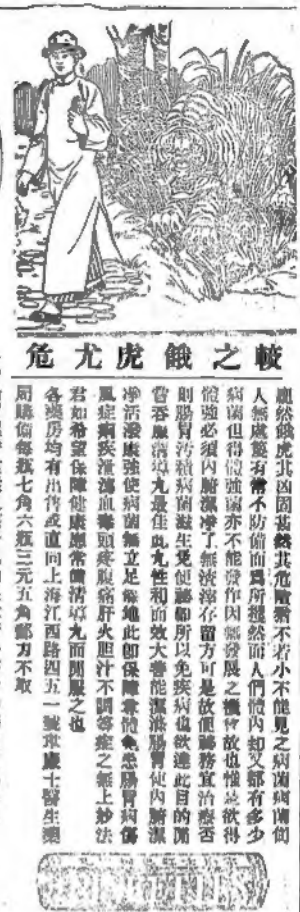 較之餓虎尤危
龐然餓虎其凶固甚然其危險猶不若小不能見之病菌病菌衛
人無處蔑有常不防備而為所攫然而人們體內却又都有多少
病菌但得體強菌亦不能發作因無發展之機會故也惟是欲得
體強必須內臟潔淨了無淤滓存留方可是故便祕務宜治療否
則腸胃污積病菌滋生免便祕即所以免疾病也欲達此目的
嘗吞服清導丸最佳此丸性和而效大善能潔滌腸胃使內臟潔
淨活潑康強使病菌無立足餘地此即保障尊體免患腸胃病傷
風症痢疾泄瀉血毒頭疼腹痛肝火胆汁不調等症之無上妙法
君如希望保障健康應常備清導丸而間服之也
各藥房均有出售或直向上海江西路四五一號韋廉士醫生藥
局購備每瓶七角六瓶三元五角郵力不取